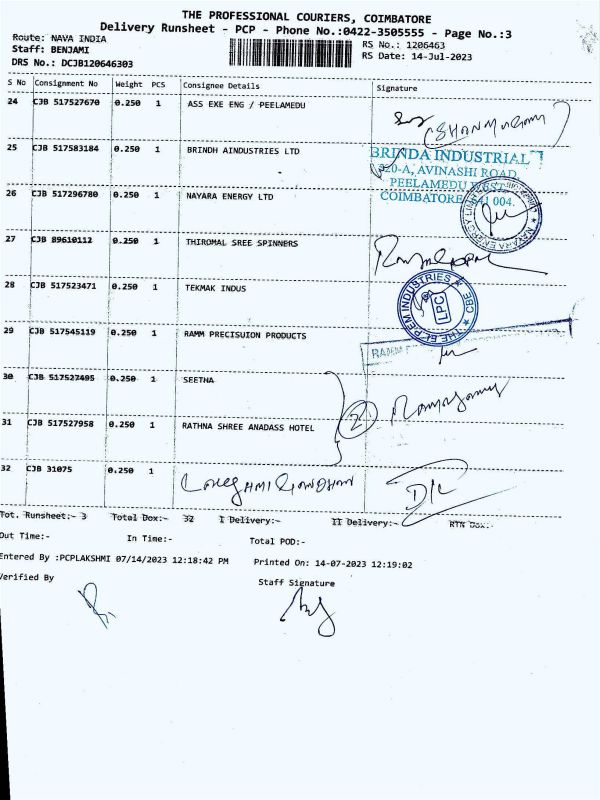 THE PROFESSIONAL COURIERS, COIMBATORE
Delivery Runsheet - PCP - Phone No.:0422-3505555 - Page No.:3
Route: NAVA INDIA
RS No.: 1206463
Staff: BENJAMI
RS Date: 14-Jul-2023
DRS No.: DCJB120646303
S No Consignment No Weight PCS Consignee Details Signature
24 CJB 517527670 0.250 1 ASS EXE ENG / PEELAMEDU
(SHANMUGAM)
25 CJB 517583184 0.250 1 BRINDH AINDUSTRIES LTD
BRINDA INDUSTRIAL
320-A, AVINASHI ROAD,
PEELAMEDU WEST,
COIMBATORE-641 004.
26 CJB 517296780 0.250 1 NAYARA ENERGY LTD
NAYARA ENERGY
27 CJB 89610112 0.250 1 THIROMAL SREE SPINNERS
28 CJB 517523471 0.250 1 TEKMAK INDUS
INDUSTRIES ★ CBE ★ THE
LPC
29 CJB 517545119 0.250 1 RAMM PRECISUION PRODUCTS
30 CJB 517527495 0.250 1 SEETHA
2
31 CJB 517527958 0.250 1 RATHNA SHREE ANADASS HOTEL
32 CJB 31075 0.250 1
D/L
Tot. Runsheet:- 3 Total Dox:- 32 I Delivery:- II Delivery:- RTN Dox:-
Out Time:- In Time:- Total POD:-
Entered By :PCPLAKSHMI 07/14/2023 12:18:42 PM Printed On: 14-07-2023 12:19:02
Verified By Staff Signature